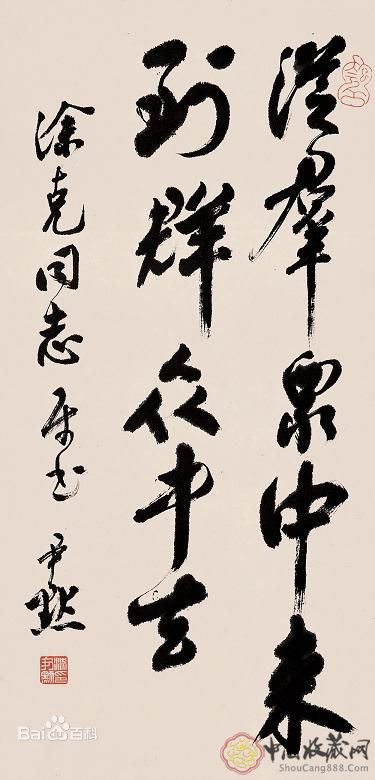 從羣眾中来
到群众中去
涂克同志属书 尹默
Bai百科
中国收藏网
ShouCang888.com